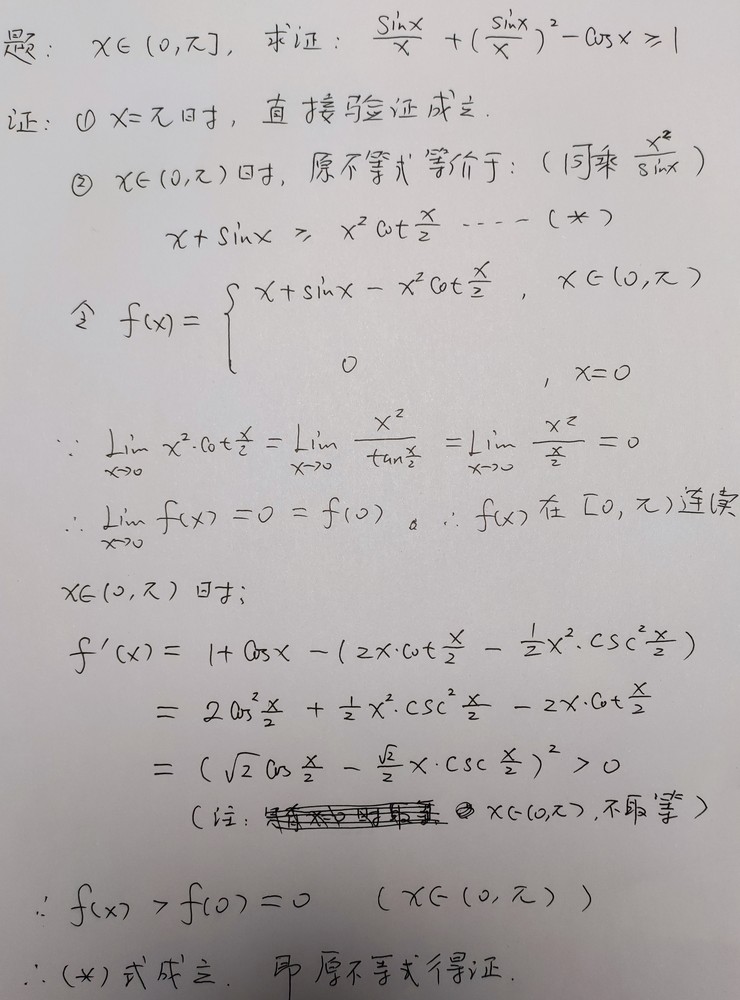 题: x∈(0,π], 求证: sinx/x + (sinx/x)² - cosx ≥ 1
证: ① x=π时, 直接验证成立.
② x∈(0,π)时, 原不等式等价于: (同乘 x²/sinx)
x + sinx ≥ x² cot x/2 ····· (*)
令 f(x) = { x + sinx - x² cot x/2 , x∈(0,π)
0 , x=0
∵ Lim x→0 x²·cot x/2 = Lim x→0 x²/tan x/2 = Lim x→0 x²/(x/2) = 0
∴ Lim x→0 f(x) = 0 = f(0) 。∴ f(x) 在 [0,π)连续
x∈(0,π)时;
f'(x) = 1 + cosx - (2x·cot x/2 - 1/2 x²·csc² x/2)
= 2cos² x/2 + 1/2 x²·csc² x/2 - 2x·cot x/2
= (√2 cos x/2 - √2/2 x·csc x/2)² > 0
(注: x∈(0,π), 不取等)
∴ f(x) > f(0) = 0 (x∈(0,π))
∴ (*)式成立. 即原不等式得证.